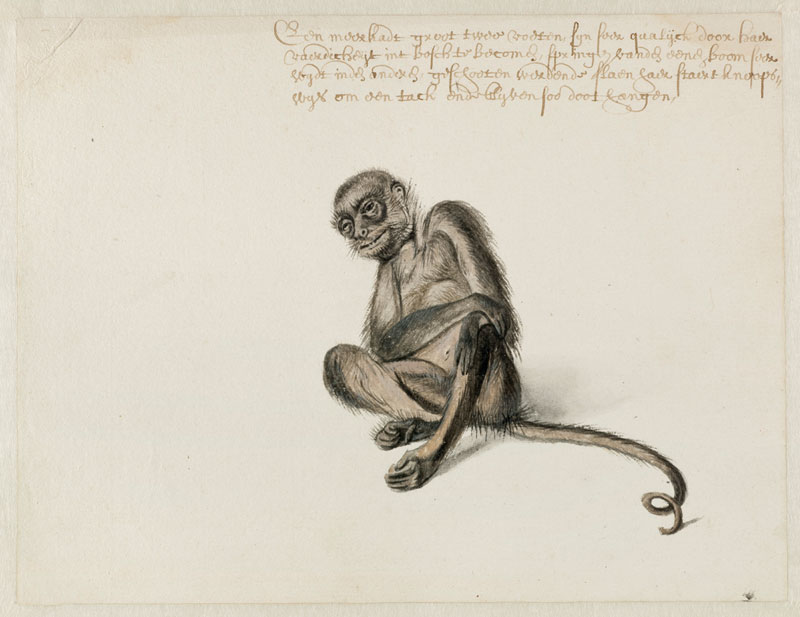 Een meerkadt groot twee voeten, sijn seer qualijck door haer
vaerdicheijt int bosch te becomen, springen vanden eenen boom seer
wijdt inden anderen, geschooten werdende slaen haer staert knoops-
wijs om een tack ende blijven soo doot hangen,